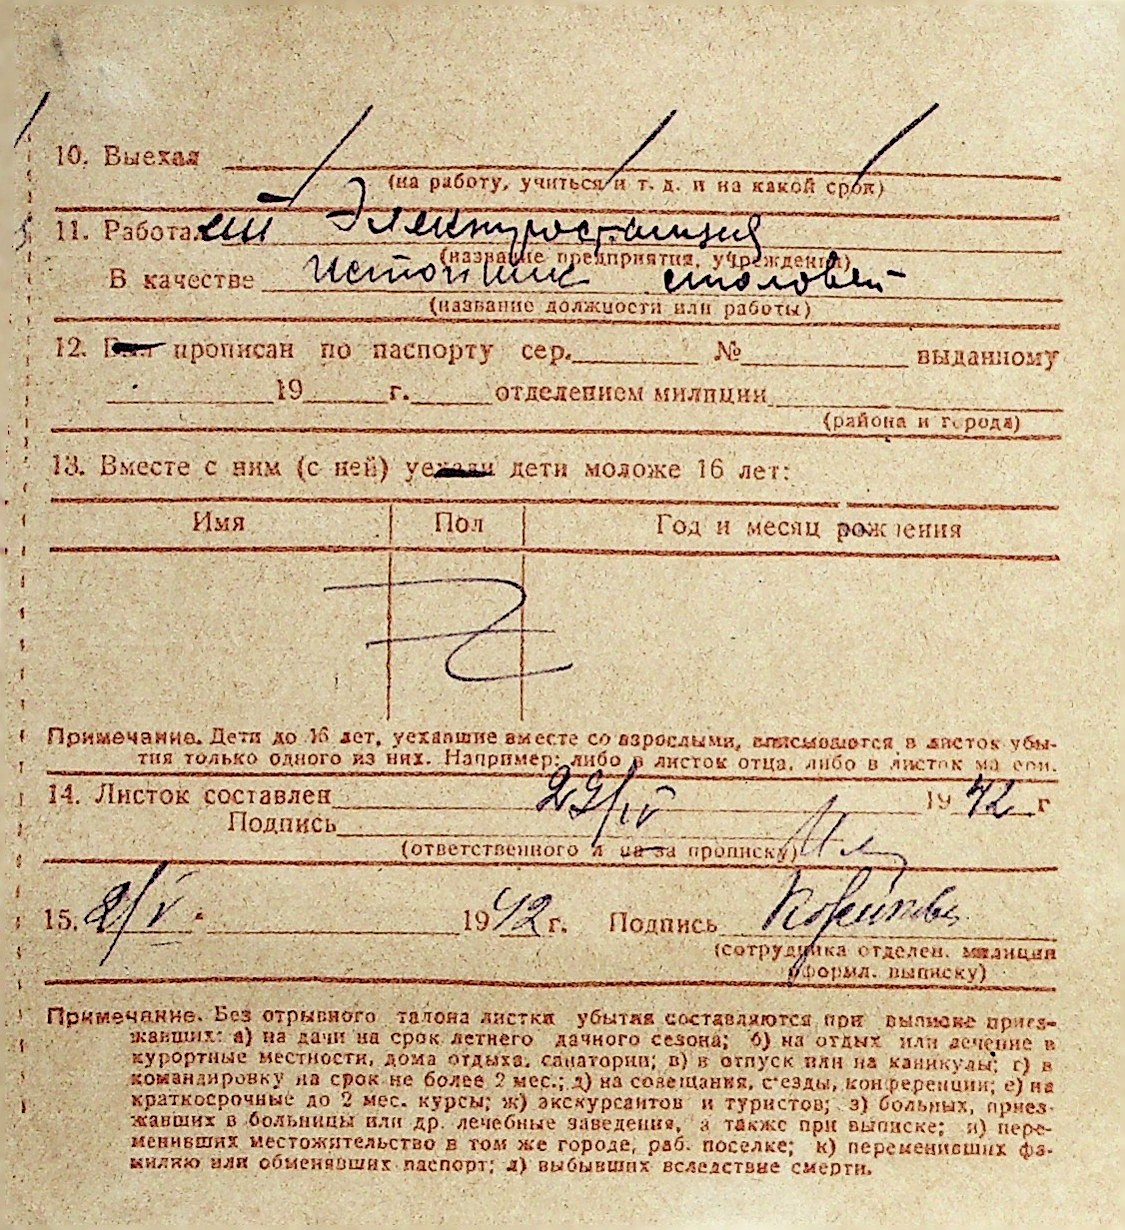 10. Выехал
(на работу, учиться и т. д. и на какой срок)
11. Работа Электростанция
(название предприятия, учреждения)
В качестве истопник столовой
(название должности или работы)
12. прописан по паспорту сер. № выданному
19 г. отделением милиции
(района и города)
13. Вместе с ним (с ней) уехали дети моложе 16 лет:
Имя Пол Год и месяц рождения
Примечание. Дети до 16 лет, уехавшие вместе со взрослыми, вписываются в листок убы-
тия только одного из них. Например: либо в листок отца, либо в листок матери.
14. Листок составлен 29/IV 1942 г
Подпись
(ответственного лица за прописку)
15. 2/V. 1942 г. Подпись
(сотрудника отделен. милиции
оформл. выписку)
Примечание. Без отрывного талона листки убытия составляются при выписке приез-
жавших: а) на дачи на срок летнего дачного сезона; б) на отдых или лечение в
курортные местности, дома отдыха, санатории; в) в отпуск или на каникулы; г) в
командировку на срок не более 2 мес.; д) на совещания, съезды, конференции; е) на
краткосрочные до 2 мес. курсы; ж) экскурсантов и туристов; з) больных, приез-
жавших в больницы или др. лечебные заведения, а также при выписке; и) пере-
менивших местожительство в том же городе, раб. поселке; к) переменивших фа-
милию или обменявших паспорт; л) выбывших вследствие смерти.